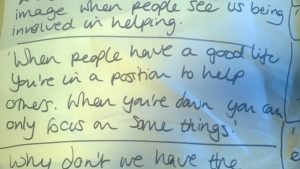 image when people see us being
involved in helping.
'When people have a good life
you're in a position to help
others. When you're down you can
only focus on some things.'
Why don't we have the